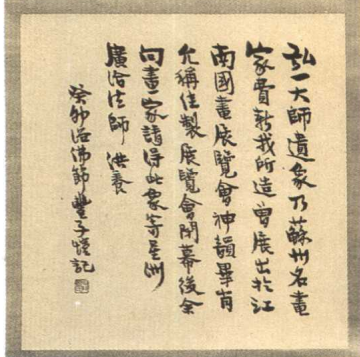 弘一大師遺象乃蘇州名畫
家費新我所造曾展出於江
南國畫展覽會神韻畢肖
允稱佳製展覽會閉幕後余
向畫家請得此象寄星洲
廣洽法師 供養
癸卯浴佛節豐子愷記